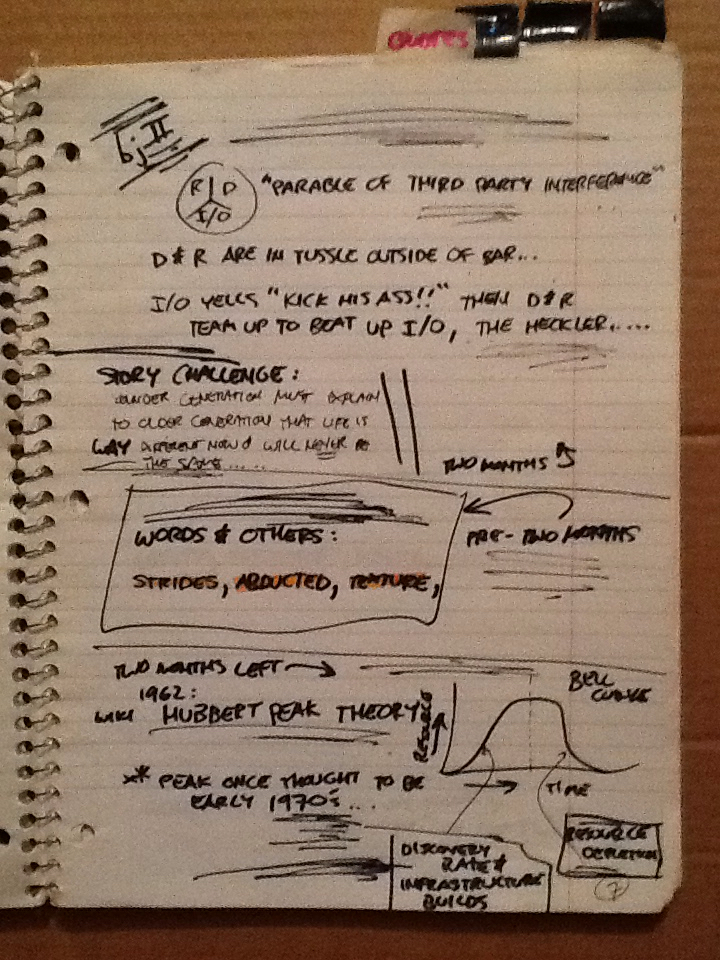 QUOTES
bj II
R D
I/O
"PARABLE OF THIRD PARTY INTERFERANCE"
D & R ARE IN TUSSLE OUTSIDE OF BAR...
I/O YELLS "KICK HIS ASS!!" THEN D & R
TEAM UP TO BEAT UP I/O, THE HECKLER.....
STORY CHALLENGE:
YOUNGER GENERATION MUST EXPLAIN
TO OLDER GENERATION THAT LIFE IS
WAY DIFFERENT NOW & WILL NEVER BE
THE SAME......
TWO MONTHS
WORDS & OTHERS:
STRIDES, ABDUCTED, TEXTURE,
PRE-TWO MONTHS
TWO MONTHS LEFT →
1962:
WIKI HUBBERT PEAK THEORY
RESOURCE
BELL
CURVE
TIME
** PEAK ONCE THOUGHT TO BE
EARLY 1970's...
DISCOVERY
RATE &
INFRASTRUCTURE
BUILDS
RESOURCE
DEPLETION
7